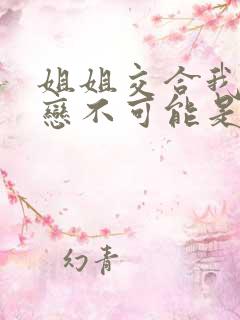 姐姐交合我
戀不可能是
幻青